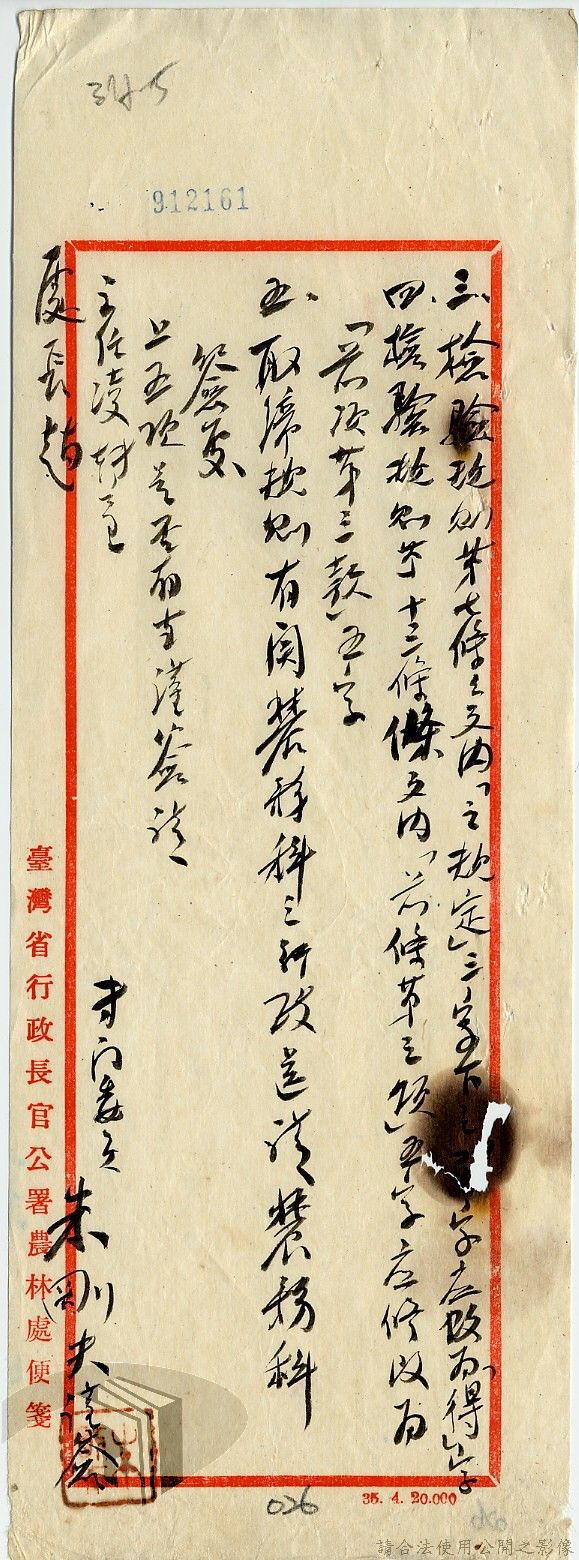 912161
三、檢驗規則第七條之文內「之規定」三字下之字應改為「得」字
四、檢驗規則第十三條條文內「前條第三項」五字应修改为
「前項第三款」五字
五、取締規則有関農務科之行政送請農務科
簽复
上五項是否有當謹簽請
主任凌轉呈
處長趙
專門委員 朱剛夫謹簽
臺灣省行政長官公署農林處便箋
026
35. 4. 20.000
請合法使用公開之影像